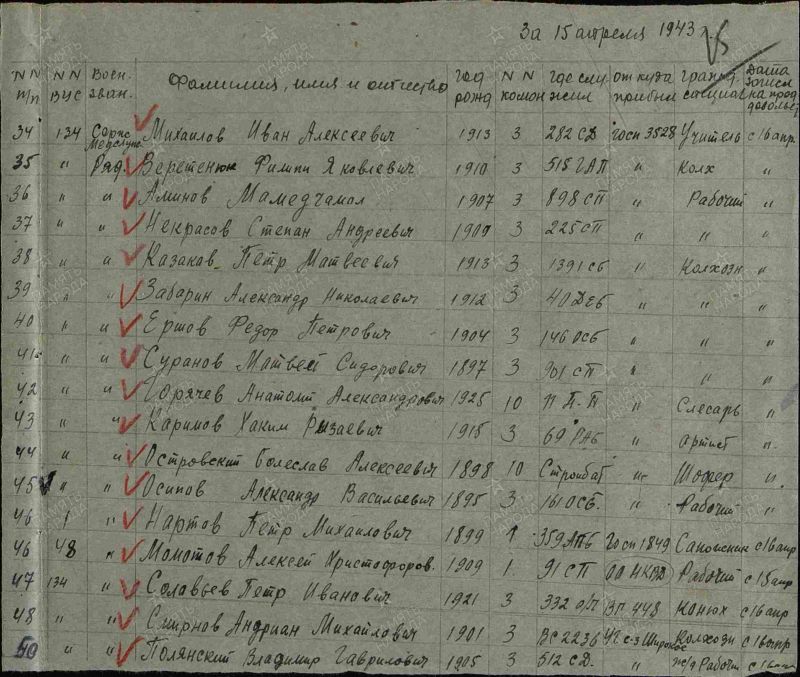 За 15 апреля 1943 г.
N N п/п N N ВУС Воен. зван. Фамилия, имя и отчество год рожд N N комон где служил откуда прибыл гражд. специал Дата записи на прод довольс.
34 134 Серж Медслуж Михаилов Иван Алексеевич 1913 3 282 СД госп 3528 Учитель с 16 апр.
35 " Ряд. Веретенюк Филипп Яковлевич 1910 3 515 ГАП " Колх "
36 " " Аминов Мамедчамол 1907 3 898 СП " Рабочий "
37 " " Некрасов Степан Андреевич 1909 3 225 СП " " "
38 " " Казаков Петр Матвеевич 1913 3 1391 СБ " Колхозн "
39 " " Забарин Александр Николаевич 1912 3 40 " " "
40 " " Ершов Федор Петрович 1904 3 146 ОСБ " " "
41 " " Суранов Матвей Сидорович 1897 3 901 СП " " "
42 " " Горячев Анатолий Александрович 1925 10 " Слесарь "
43 " " Каримов Хаким Рызаевич 1915 3 69 РАБ " артист "
44 " " Островский Болеслав Алексеевич 1898 10 Стройбат " Шофер "
45 " " Осипов Александр Васильевич 1895 3 161 ОСБ. " Рабочий "
46 " " Нартов Петр Михаилович 1899 1 359 АПБ Госп 1849 Сапожник с 16 апр
46 48 " Момотов Алексей Христофоров. 1909 1. 91 СП ОО НКВД Рабочий с 15 апр
47 134 " Соловьев Петр Иванович 1921 3 332 ЭП 448 Конюх с 16 апр
48 " " Смирнов Андриан Михайлович 1901 3 ВС 2236 с-з Широкое Колхозн с 16 апр
50 " " Полянский Владимир Гаврилович 1905 3 512 СД. " ж/д Рабочий с 16 апр